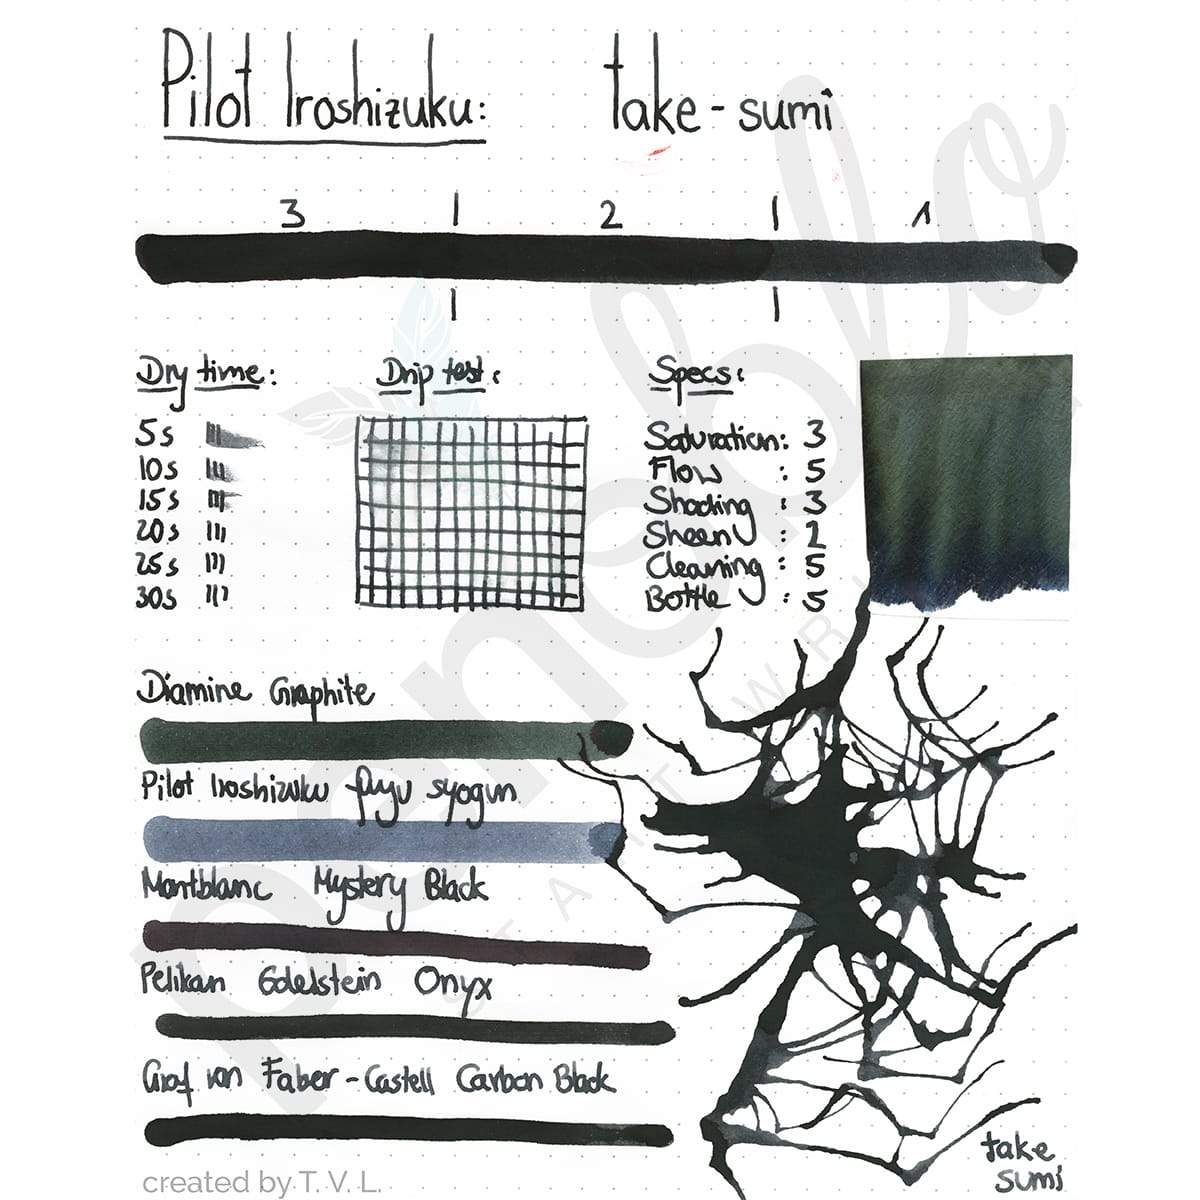 Pilot Iroshizuku: take-sumi
3 | 2 | 1
Dry time:
5s
10s
15s
20s
25s
30s
Drip test:
Specs:
Saturation: 3
Flow : 5
Shading : 3
Sheen : 1
Cleaning : 5
Bottle : 5
Diamine Graphite
Pilot Iroshizuku fuyu syogun
Montblanc Mystery Black
Pelikan Edelstein Onyx
Graf von Faber-Castell Carbon Black
take
sumi
penoblo
created by T. V. L.